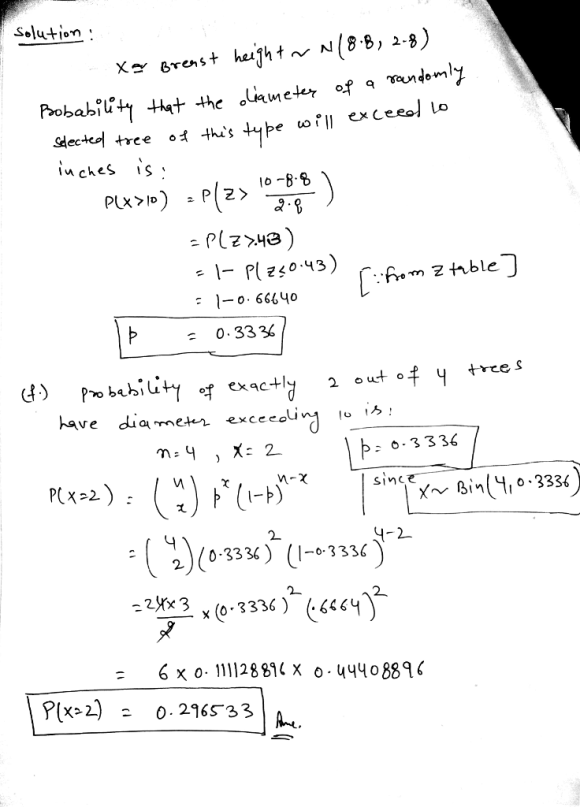 Solution :
X = Breast height ~ N(8.8, 2.8)
Probability that the diameter of a randomly
selected tree of this type will exceed 10
inches is :
P(X>10) = P(Z > (10-8.8)/2.8)
= P(Z>.43)
= 1- P(Z≤0.43) [∵ from Z table]
= 1-0.66640
p = 0.3336
(f.) probability of exactly 2 out of 4 trees
have diameter exceeding 10 is :
n=4 , X=2 p=0.3336
P(X=2) = (n x) p^x (1-p)^n-x since X~ Bin(4,0.3336)
= (4 2) (0.3336)^2 (1-0.3336)^4-2
= 2 4×3/2 × (0.3336)^2 (.6664)^2
= 6 × 0.111128896 × 0.44408896
P(X=2) = 0.296533 Ans.